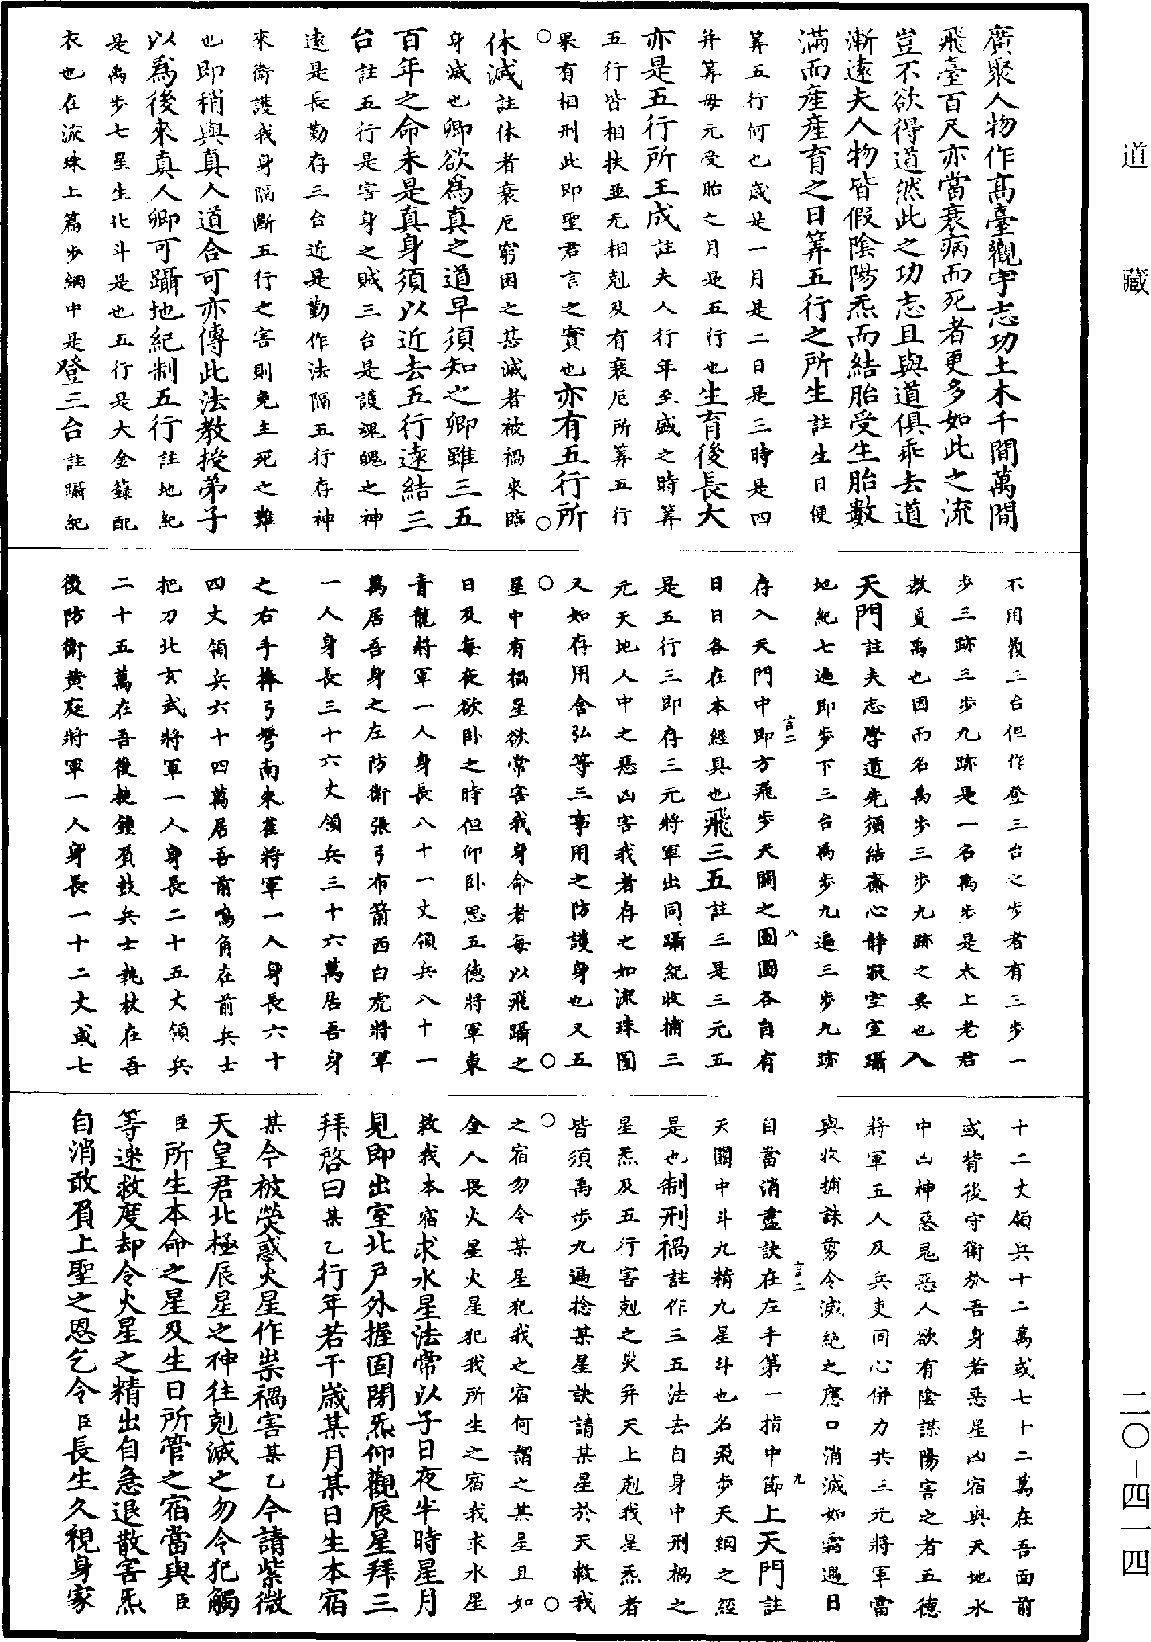 道藏
二〇—四一四
廣聚人物作高臺觀宇志功土木千間萬間
飛臺百尺亦當衰病而死者更多如此之流
豈不欲得道然此之功志且與道俱乖去道
漸遠夫人物皆假陰陽炁而結胎受生胎數
滿而產產育之日筭五行之所生註生日便
筭五行何也歲是一月是二日是三時是四
并筭母元受胎之月是五行也生育後長大
亦是五行所王成註夫人行年至盛之時筭
五行皆相扶並无相剋及有衰厄所筭五行
果有相刑此即聖君言之實也亦有五行所
休減註休者衰厄窮困之惡減者被禍來臨
身減也卿欲為真之道早須知之卿雖三五
百年之命未是真身須以近去五行遠結三
台註五行是害身之賊三台是護魂魄之神
遠是長勤存三台近是勤作法隔五行存神
來衛護我身隔斷五行之害則免主死之難
也即稍與真人道合可亦傳此法教授弟子
以為後來真人卿可躡地紀制五行註地紀
是禹步七星生北斗是也五行是大金籙配
衣也在流珠上篇步綱中是登三台註躡紀
不用覆三台但作登三台之步者有三步一
步三跡三步九跡是一名禹步是太上老君
教夏禹也因而名禹步三步九跡之要也入
天門註夫志學道先須結齋心靜寂空室躡
地紀七遍即步下三台禹步九遍三步九跡
存入天門中即方飛步天關之圖圖各自有
日日各在本經具也飛三五註三是三元五
是五行三即存三元將軍出同躡紀收捕三
元天地人中之惡凶害我者存之如流珠圖
又如存用含弘等三事用之防護身也又五
星中有禍星欲常害我身命者每以飛躡之
日及每夜欲臥之時但仰臥思五德將軍東
青龍將軍一人身長八十一丈領兵八十一
萬居吾身之左防衛張弓布箭西白虎將軍
一人身長三十六丈領兵三十六萬居吾身
之右手捧弓弩南朱雀將軍一人身長六十
四丈領兵六十四萬居吾前鳴角在前兵士
把刀北玄武將軍一人身長二十五丈領兵
二十五萬在吾後槌鍾負鼓兵士執杖在吾
後防衛黃庭將軍一人身長一十二丈或七
十二丈領兵十二萬或七十二萬在吾面前
或背後守衛於吾身若惡星凶宿與天地水
中凶神惡鬼惡人欲有陰謀陽害之者五德
將軍五人及兵吏同心併力共三元將軍當
與收捕誅剪令滅絕之應口消滅如霜遇日
自當消盡訣在左手第一指中節上天門註
天關中斗九精九星斗也名飛步天綱之經
是也制刑禍註作三五法去自身中刑禍之
星炁及五行害剋之災并天上剋我星炁者
皆須禹步九遍捻某星訣請某星於天救我
之宿勿令某星犯我之宿何謂之某星且如
金人畏火星火星犯我所生之宿我求水星
救我本宿求水星法常以子日夜半時星月
見即出室北戶外握固閉炁仰觀辰星拜三
拜啓曰某乙行年若干歲某月某日生本宿
某今被熒惑火星作祟禍害某乙今請紫微
天皇君北極辰星之神往剋滅之勿令犯觸
臣所生本命之星及生日所管之宿當與臣
等速救度却令火星之精出自急退散害炁
自消敢負上聖之恩乞令臣長生久視身家
言二
八
言二
九